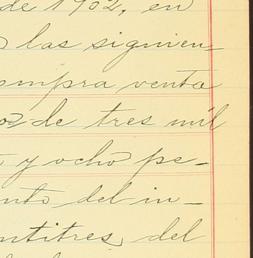 de 1902, en
las siguien
ompra venta
de tres mil
y ocho pe-
nto del in-
ntitres, del